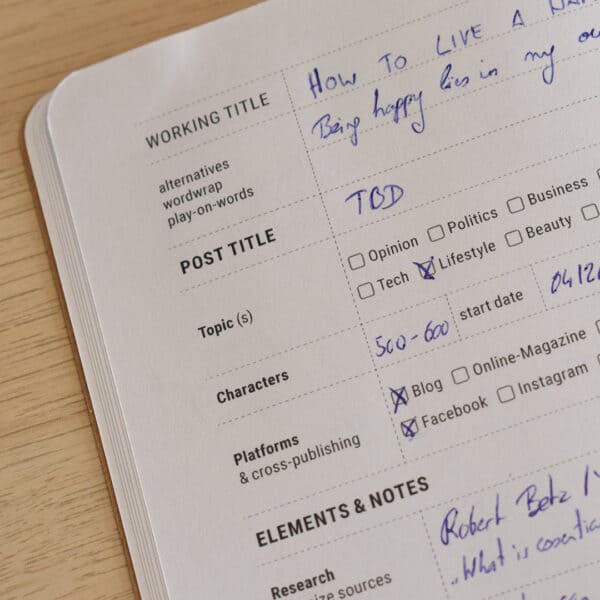 HOW TO LIVE A
WORKING TITLE
Being happy lies in my
alternatives
wordwrap
play-on-words
TBD
POST TITLE
Opinion Politics Business
Tech Lifestyle Beauty
Topic (s)
500-600 start date 04/12
Characters
Blog Online-Magazine
Facebook Instagram
Platforms
& cross-publishing
ELEMENTS & NOTES
Robert Betz
Research
sources
"What is